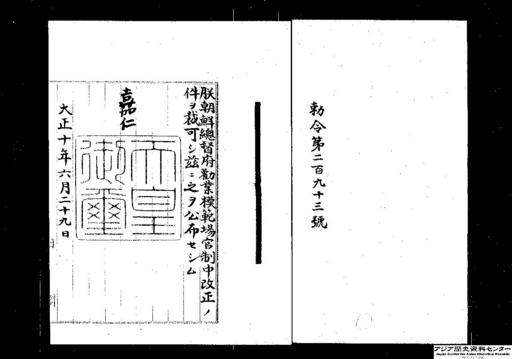 勅令第二百九十三號
朕朝鮮總督府勸業模範場官制中改正ノ
件ヲ裁可シ茲ニ之ヲ公布セシム
嘉仁
天皇
御璽
大正十年六月二十九日
アジア歴史資料センター
Japan Center for Asian Historical Records